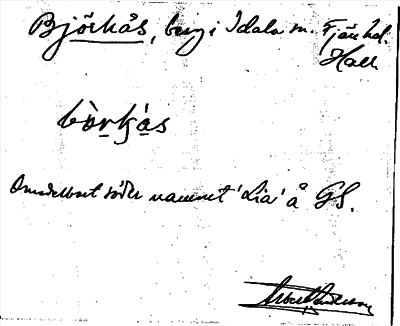 Björkås, berg i Idala sn. Fjäre hd.
Hall.
bò̱rḵás
Omedelbart söder namnet 'Lia' å GS.